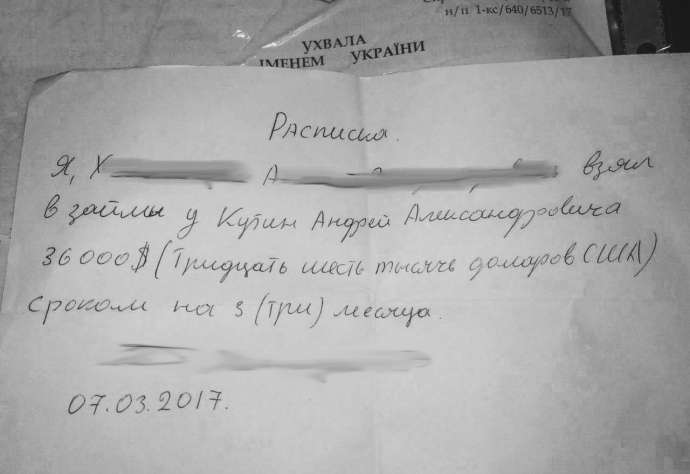 н/п 1-кс/640/6513/17
УХВАЛА
ІМЕНЕМ УКРАЇНИ
Расписка.
Я, Х А взял
в займы у Кутин Андрей Александровича
36000$ (Тридцать шесть тысячь доларов США)
сроком на 3 (три) месяца.
07.03.2017.